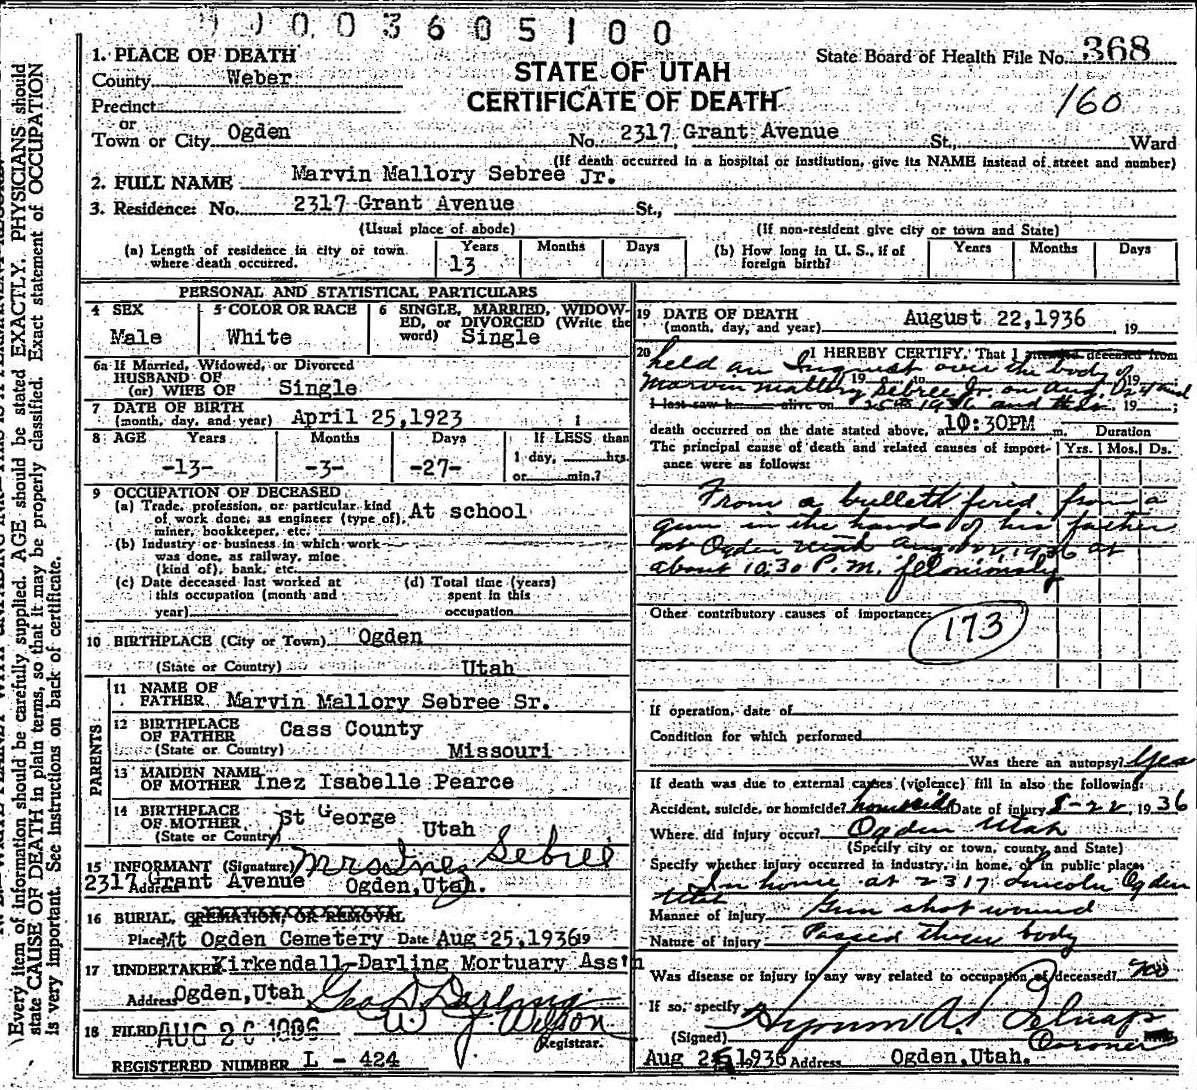 0 0 0 3 6 0 5 1 0 0
State Board of Health File No. 368
160
STATE OF UTAH
CERTIFICATE OF DEATH
1. PLACE OF DEATH
County Weber
Precinct
or
Town or City Ogden No. 2317 Grant Avenue St., Ward
(If death occurred in a hospital or institution, give its NAME instead of street and number)
2. FULL NAME Marvin Mallory Sebree Jr.
3. Residence: No. 2317 Grant Avenue St.,
(Usual place of abode) (If non-resident give city or town and State)
(a) Length of residence in city or town where death occurred. Years 13 Months Days
(b) How long in U. S., if of foreign birth? Years Months Days
PERSONAL AND STATISTICAL PARTICULARS
4 SEX Male
5 COLOR OR RACE White
6 SINGLE, MARRIED, WIDOWED, or DIVORCED (Write the word) Single
6a If Married, Widowed, or Divorced
HUSBAND OF
(or) WIFE OF Single
7 DATE OF BIRTH
(month, day, and year) April 25,1923
8 AGE Years -13- Months -3- Days -27- If LESS than 1 day, hrs. or min.?
9 OCCUPATION OF DECEASED
(a) Trade, profession, or particular kind of work done, as engineer (type of), miner, bookkeeper, etc. At school
(b) Industry or business in which work was done, as railway, mine (kind of), bank, etc.
(c) Date deceased last worked at this occupation (month and year)
(d) Total time (years) spent in this occupation
10 BIRTHPLACE (City or Town) Ogden
(State or Country) Utah
PARENTS
11 NAME OF FATHER Marvin Mallory Sebree Sr.
12 BIRTHPLACE OF FATHER Cass County
(State or Country) Missouri
13 MAIDEN NAME OF MOTHER Inez Isabelle Pearce
14 BIRTHPLACE OF MOTHER St George
(State or Country) Utah
15 INFORMANT (Signature) Mrs Inez Sebree
Address 2317 Grant Avenue Ogden,Utah.
16 BURIAL, CREMATION, OR REMOVAL
Place Mt Ogden Cemetery Date Aug 25,1936 19
17 UNDERTAKER Kirkendall-Darling Mortuary Ass'n
Address Ogden,Utah Geo D Darling
18 FILED AUG 26 1936 W. J. Wilson
Registrar.
REGISTERED NUMBER L - 424
19 DATE OF DEATH
(month, day, and year) August 22,1936 19
20 I HEREBY CERTIFY, That I attended deceased from
held an Inquest over the body of 19
Marvin Mallory Sebree Jr. on Aug. 24 and 19 to 19
I last saw h alive on 25th 1936 and that 19 ;
death occurred on the date stated above, at 10:30PM m. Duration
The principal cause of death and related causes of importance were as follows: Yrs. Mos. Ds.
From a bullett fired from a
gun in the hands of his father
at Ogden Utah Aug 22, 1936 at
about 10.30 P.M. feloniously
Other contributory causes of importance:
173
If operation, date of
Condition for which performed
Was there an autopsy? Yes
If death was due to external causes (violence) fill in also the following:
Accident, suicide, or homicide? homicide Date of injury 8-22, 1936
Where did injury occur? Ogden Utah
(Specify city or town, county and State)
Specify whether injury occurred in industry, in home, or in public place
In home at 2317 Lincoln Ogden
Utah
Manner of injury Gun shot wound
Nature of injury Passed threw body
Was disease or injury in any way related to occupation of deceased? no
If so, specify
(Signed) Hyrum A. Belnap
Coroner
Aug 25,1936 Address Ogden,Utah.
Every item of information should be carefully supplied. AGE should be stated EXACTLY. PHYSICIANS should
state CAUSE OF DEATH in plain terms, so that it may be properly classified. Exact statement of OCCUPATION
is very important. See instructions on back of certificate.